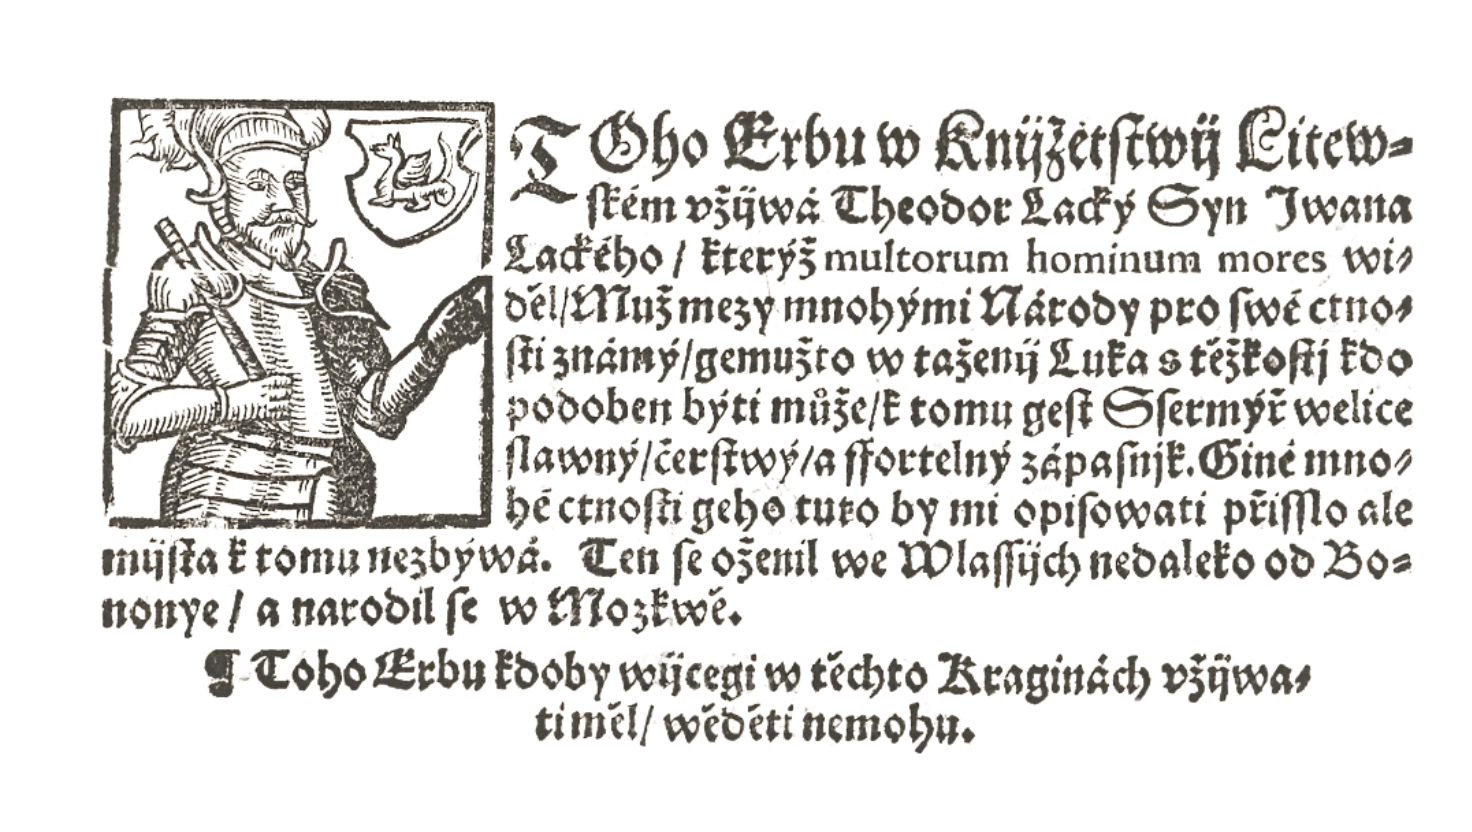 TOho Erbu w Knijžetstwij Litew-
ském vžijwá Theodor Lacký Syn Jwana
Lackého / kterýž multorum hominum mores wi-
děl/Muž mezy mnohými Národy pro swé ctno-
sti známý/gemužto w taženij Luka s těžkostj kdo
podoben býti může/k tomu gest Ssermýř welice
slawný/čerstwý/a ffortelný zápasnjk. Giné mno-
hé ctnosti geho tuto by mi opisowati přisslo ale
mijsta k tomu nezbýwá. Ten se oženil we Wlassijch nedaleko od Bo-
nonye / a narodil se w Mozkwě.
¶ Toho Erbu kdoby wijcegi w těchto Kraginách vžijwa-
ti měl/ wěděti nemohu.